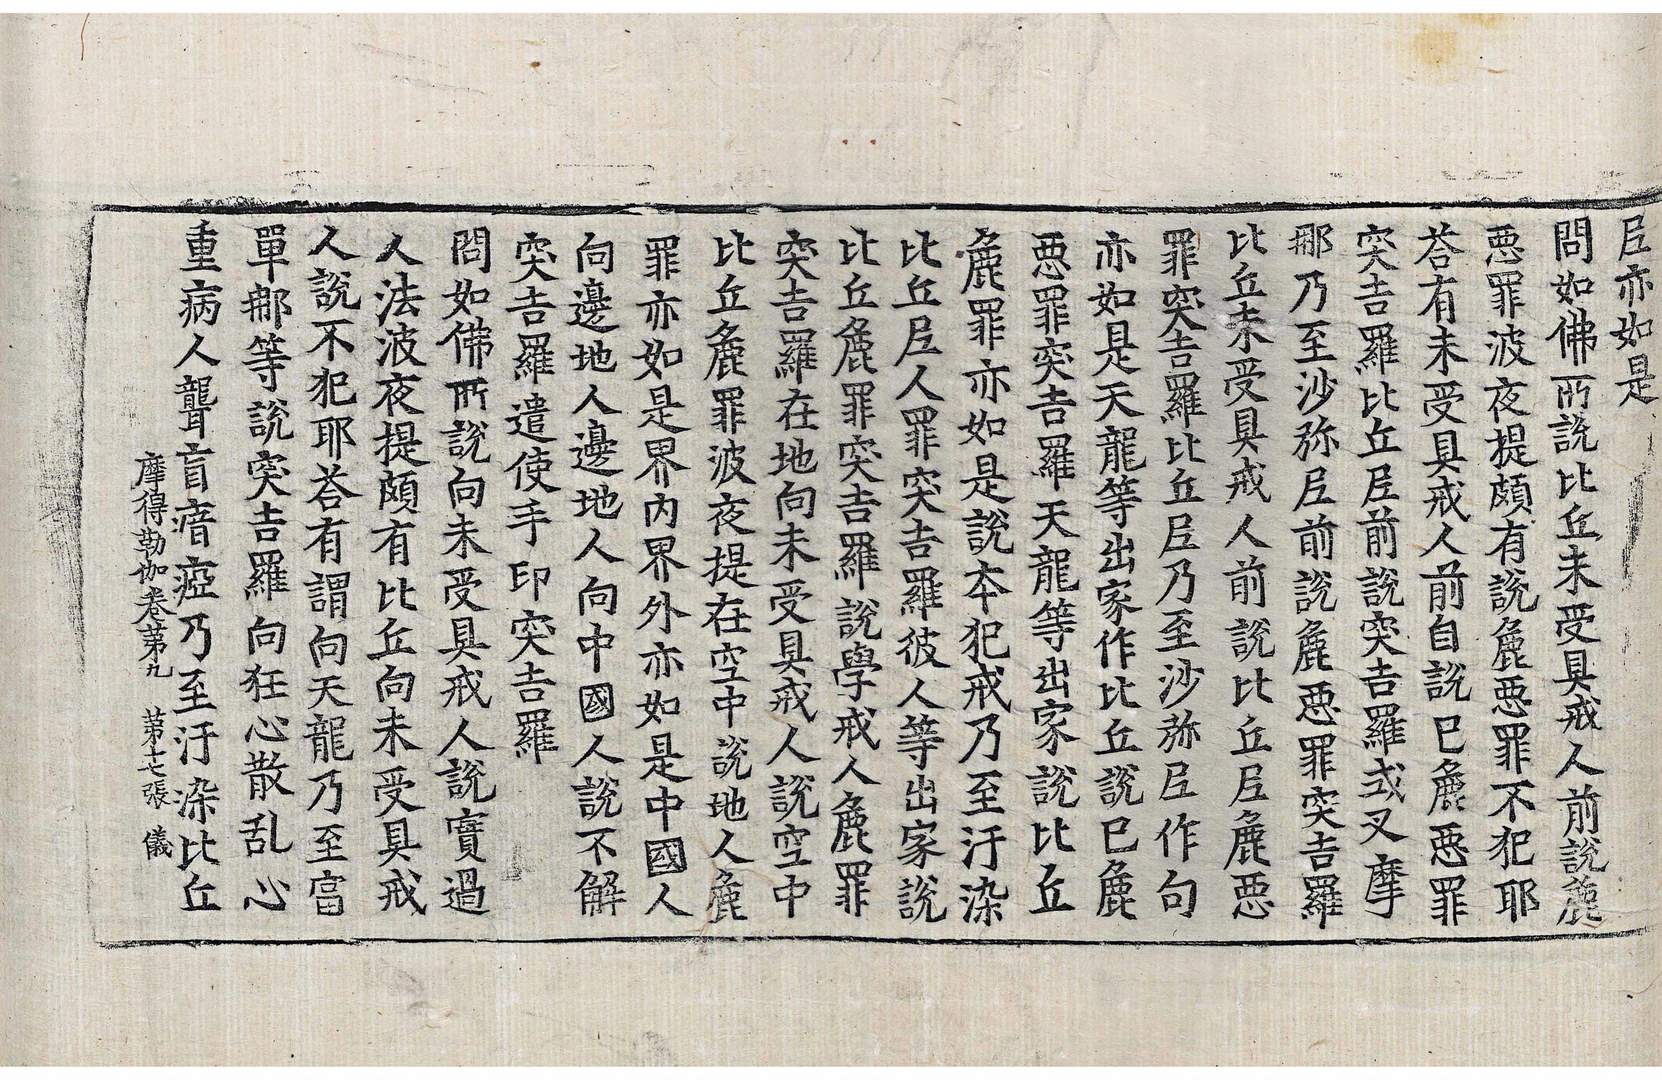 尼亦如是
問如佛所說比丘未受具戒人前說麁
惡罪波夜提頗有說麁惡罪不犯耶
荅有未受具戒人前自說已麁惡罪
突吉羅比丘尼前說突吉羅式叉摩
那乃至沙弥尼前說麁惡罪突吉羅
比丘未受具戒人前說比丘尼麁惡
罪突吉羅比丘尼乃至沙弥尼作句
亦如是天龍等出家作比丘說已麁
惡罪突吉羅天龍等出家說比丘
麁罪亦如是說本犯戒乃至汙染
比丘尼人罪突吉羅彼人等出家說
比丘麁罪突吉羅說學戒人麁罪
突吉羅在地向未受具戒人說空中
比丘麁罪波夜提在空中說地人麁
罪亦如是界內界外亦如是中國人
向邊地人邊地人向中國人說不解
突吉羅遣使手印突吉羅
問如佛所說向未受具戒人說實過
人法波夜提頗有比丘向未受具戒
人說不犯耶荅有謂向天龍乃至富
單那等說突吉羅向狂心散乱心
重病人聾盲瘖瘂乃至汙染比丘
摩得勒伽卷第九 第十七張 儀